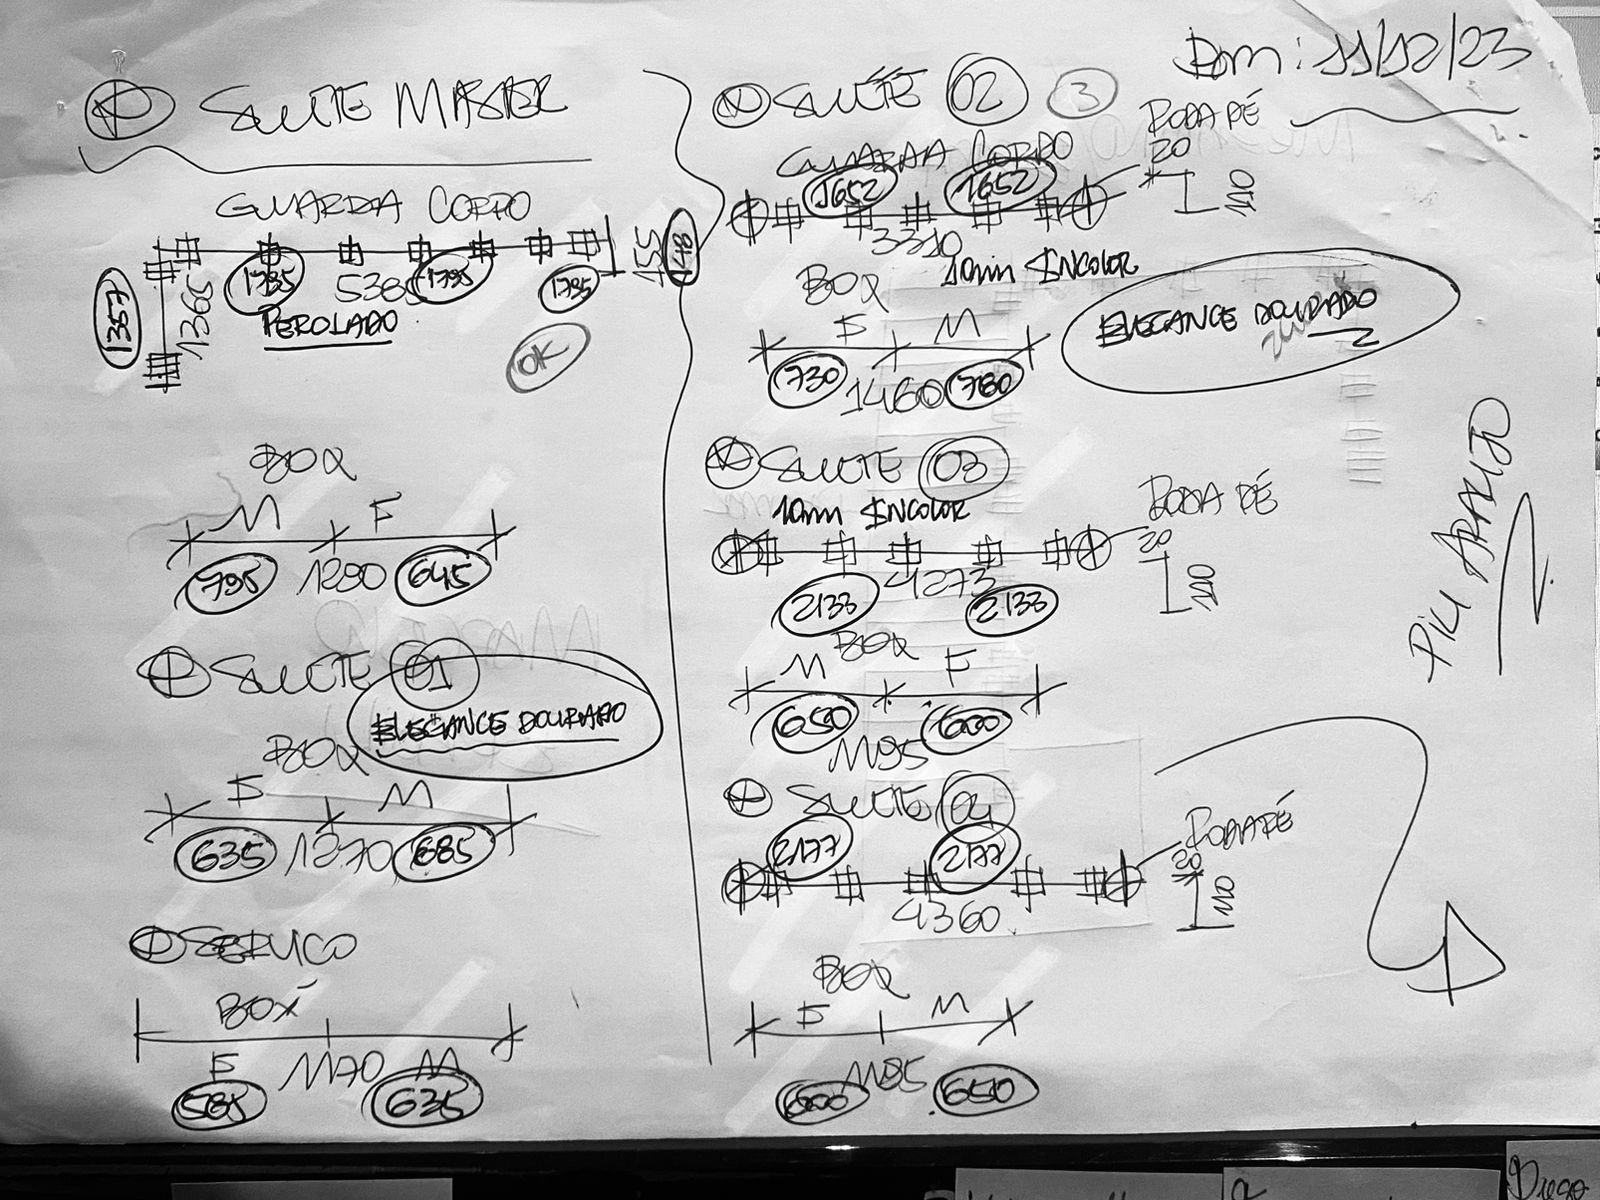 SUITE MASTER
GUARDA CORPO
1795 5385 1795 1795
455 448
1357 1365
PEROLADO
OK
BOX
M F
795 1290 645
SUITE 01
ELEGANCE DOURADO
BOX
F M
635 1270 685
SERVICO
BOX
F 1170 M
585 635
Dom: 11/12/23
SUÍTE 02 3
GUARDA CORPO
RODA PÉ
1652 1652
20
110
3310
BOX 10mm INCOLOR
F M
ELEGANCE DOURADO
730 1460 780
SUITE 03
10mm INCOLOR
RODA PÉ
20
110
4273
2133 2133
BOX
M F
650 600
1195
SUITE 04
2177 2177
RODAPÉ
20
110
4360
BOX
F M
1195
600 650
PILI ARAUJO
Diego